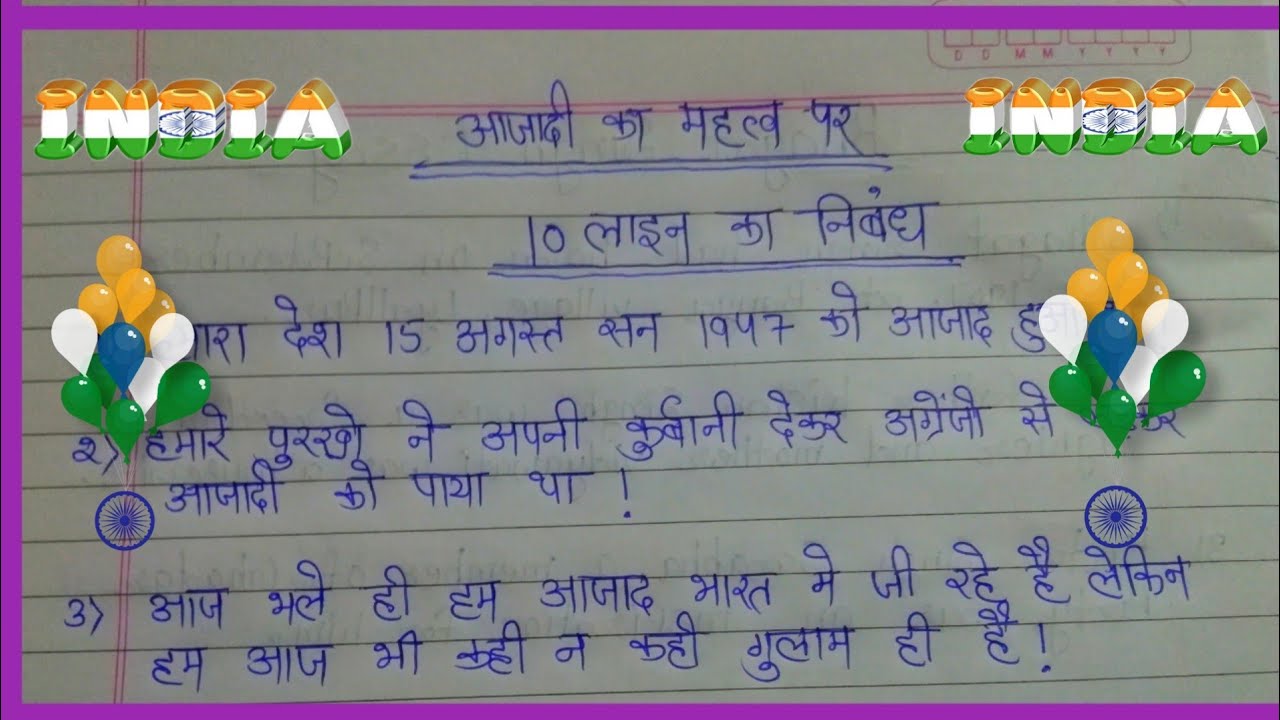 D D M M Y Y Y Y
INDIA
INDIA
आजादी का महत्व पर
10 लाइन का निबंध
देश 15 अगस्त सन 1947 को आजाद
२) हमारे पुरखो ने अपनी कुर्बानी देकर अग्रेंजो से
आजादी को पाया था !
३) आज भले ही हम आजाद भारत मे जी रहे है लेकिन
हम आज भी कही न कही गुलाम ही है !